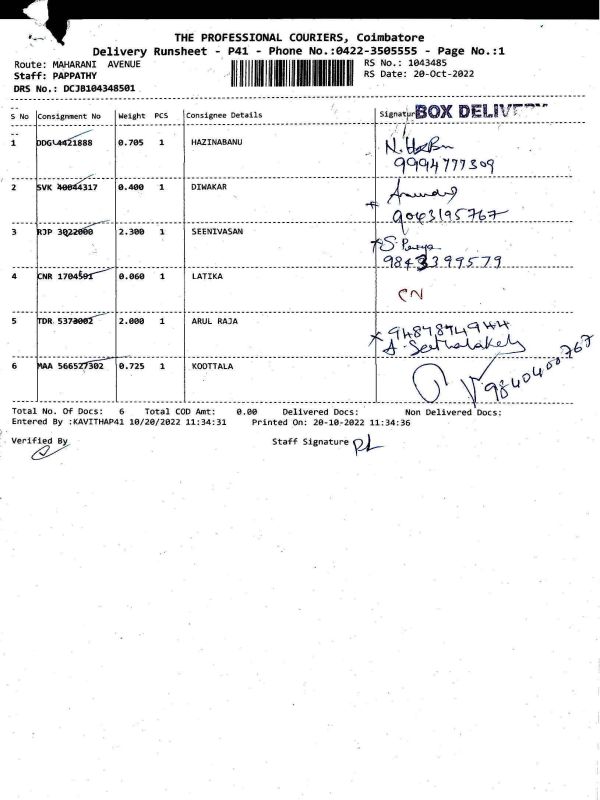 THE PROFESSIONAL COURIERS, Coimbatore
Delivery Runsheet - P41 - Phone No.:0422-3505555 - Page No.:1
Route: MAHARANI AVENUE RS No.: 1043485
Staff: PAPPATHY RS Date: 20-Oct-2022
DRS No.: DCJB104348501
S No Consignment No Weight PCS Consignee Details Signatur BOX DELIVERY
1 DDG 4421888 0.705 1 HAZINABANU
9994777309
2 SVK 40044317 0.400 1 DIWAKAR
9043195767
3 RJP 3022000 2.300 1 SEENIVASAN S. Parya
9843399579
4 CNR 1704501 0.060 1 LATIKA CN
5 TDR 5373002 2.000 1 ARUL RAJA 9487874944
6 MAA 566527302 0.725 1 KOOTTALA 9840400767
Total No. Of Docs: 6 Total COD Amt: 0.00 Delivered Docs: Non Delivered Docs:
Entered By :KAVITHAP41 10/20/2022 11:34:31 Printed On: 20-10-2022 11:34:36
Verified By Staff Signature